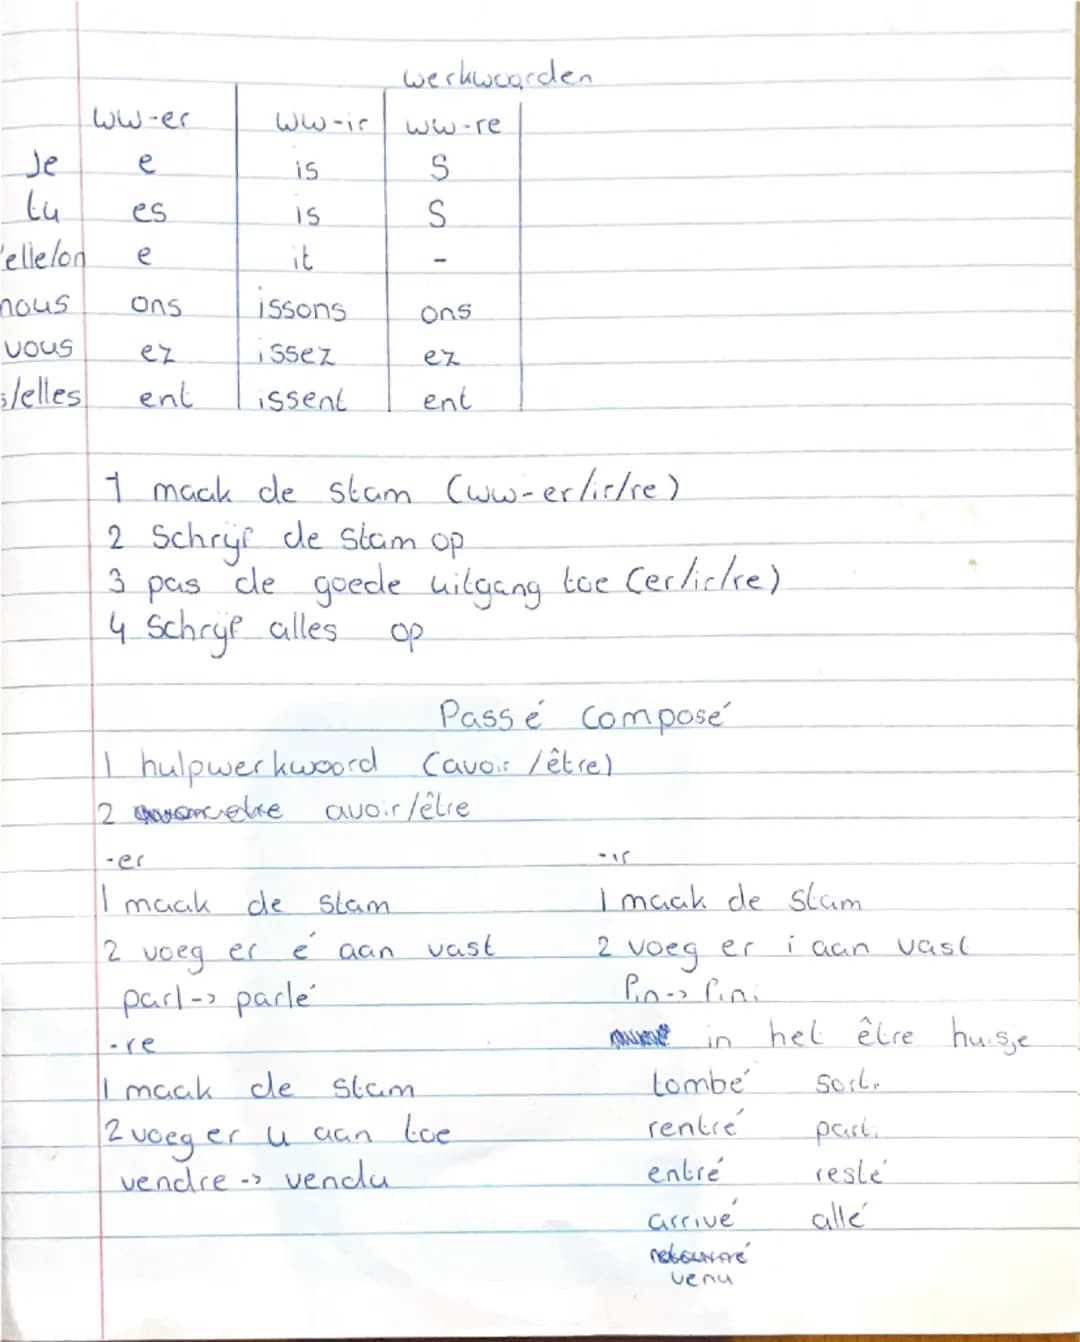 werkwoorden
ww-er ww-ir ww-re
Je e is S
tu es is S
elle/on e it -
nous ons issons ons
vous ez issez ez
s/elles ent issent ent
1 maak de stam (ww-er/ir/re)
2 Schrijf de stam op
3 pas de goede uitgang toe (er/ir/re)
4 Schrijf alles op
Passé composé
1 hulpwerkwoord (avoir/être)
2 avoir/être
-er -ir
1 maak de stam 1 maak de stam
2 voeg er é aan vast 2 voeg er i aan vast
parl-> parlé fin-> fini
-re in het être huisje
1 maak de stam tombé sorti
2 voeg er u aan toe rentré parti
vendre -> vendu entré resté
arrivé allé
venu